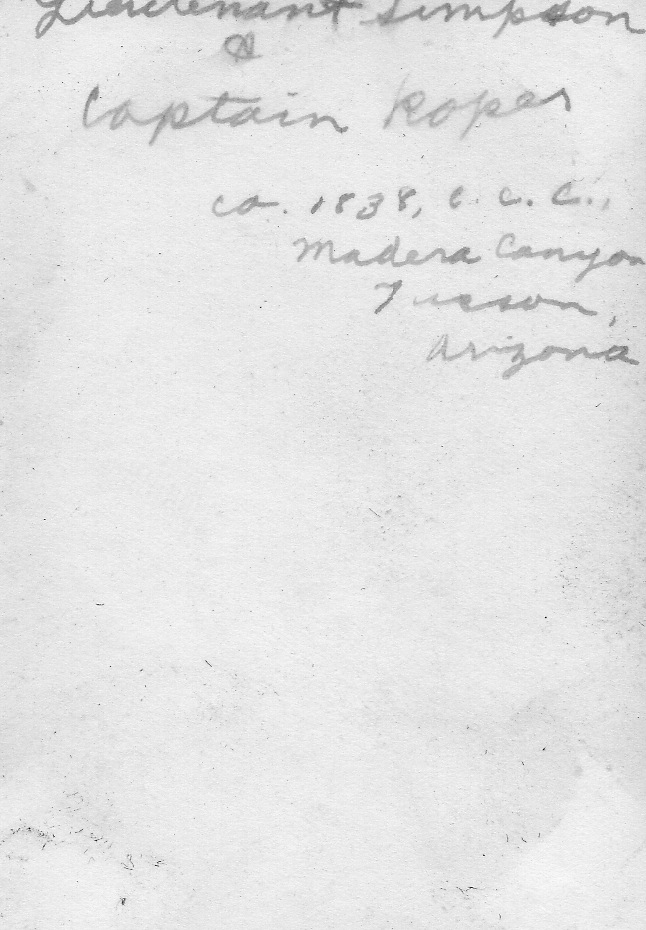 Lieutenant Simpson
&
Captain Roper
Co. 1838, C. C. C.,
Madera Canyon
Tucson,
Arizona